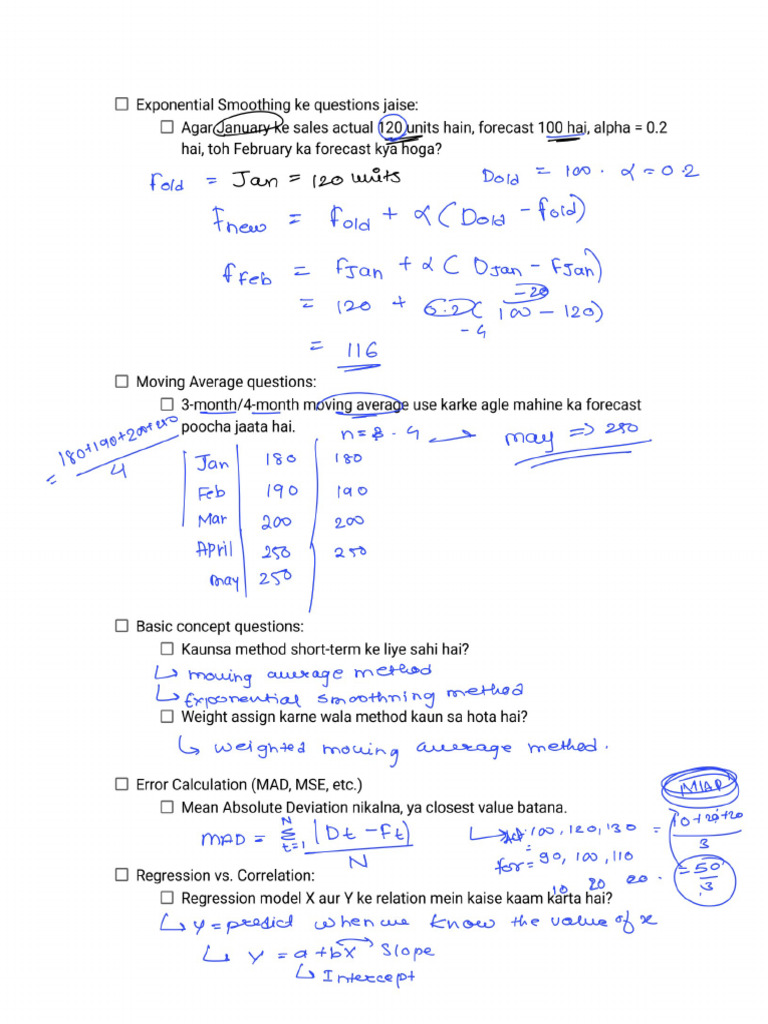 Exponential Smoothing ke questions jaise:
Agar January ke sales actual 120 units hain, forecast 100 hai, alpha = 0.2
hai, toh February ka forecast kya hoga?
Fold = Jan = 120 units Dold = 100 . α = 0.2
Fnew = fold + α ( Dold - fold)
fFeb = FJan + α ( DJan - FJan)
-20
= 120 + 0.2 ( 100 - 120)
-4
= 116
Moving Average questions:
3-month/4-month moving average use karke agle mahine ka forecast
poocha jaata hai.
may => 250
4
Jan 180 180
Feb 190 190
Mar 200 200
April 250 250
may 250
Basic concept questions:
Kaunsa method short-term ke liye sahi hai?
↳ moving average method
↳ Exponential smoothning method
Weight assign karne wala method kaun sa hota hai?
↳ weighted moving average method.
Error Calculation (MAD, MSE, etc.)
Mean Absolute Deviation nikalna, ya closest value batana.
MAD = N Σ t=1 |Dt - Ft| / N
100, 120, 130 = 10+20+20 / 3
for = 90, 100, 110
10 20 20 . = 50 / 3
Regression vs. Correlation:
Regression model X aur Y ke relation mein kaise kaam karta hai?
↳ y = predict when we know the value of x
↳ Y = a + bx → Slope
↳ Intercept